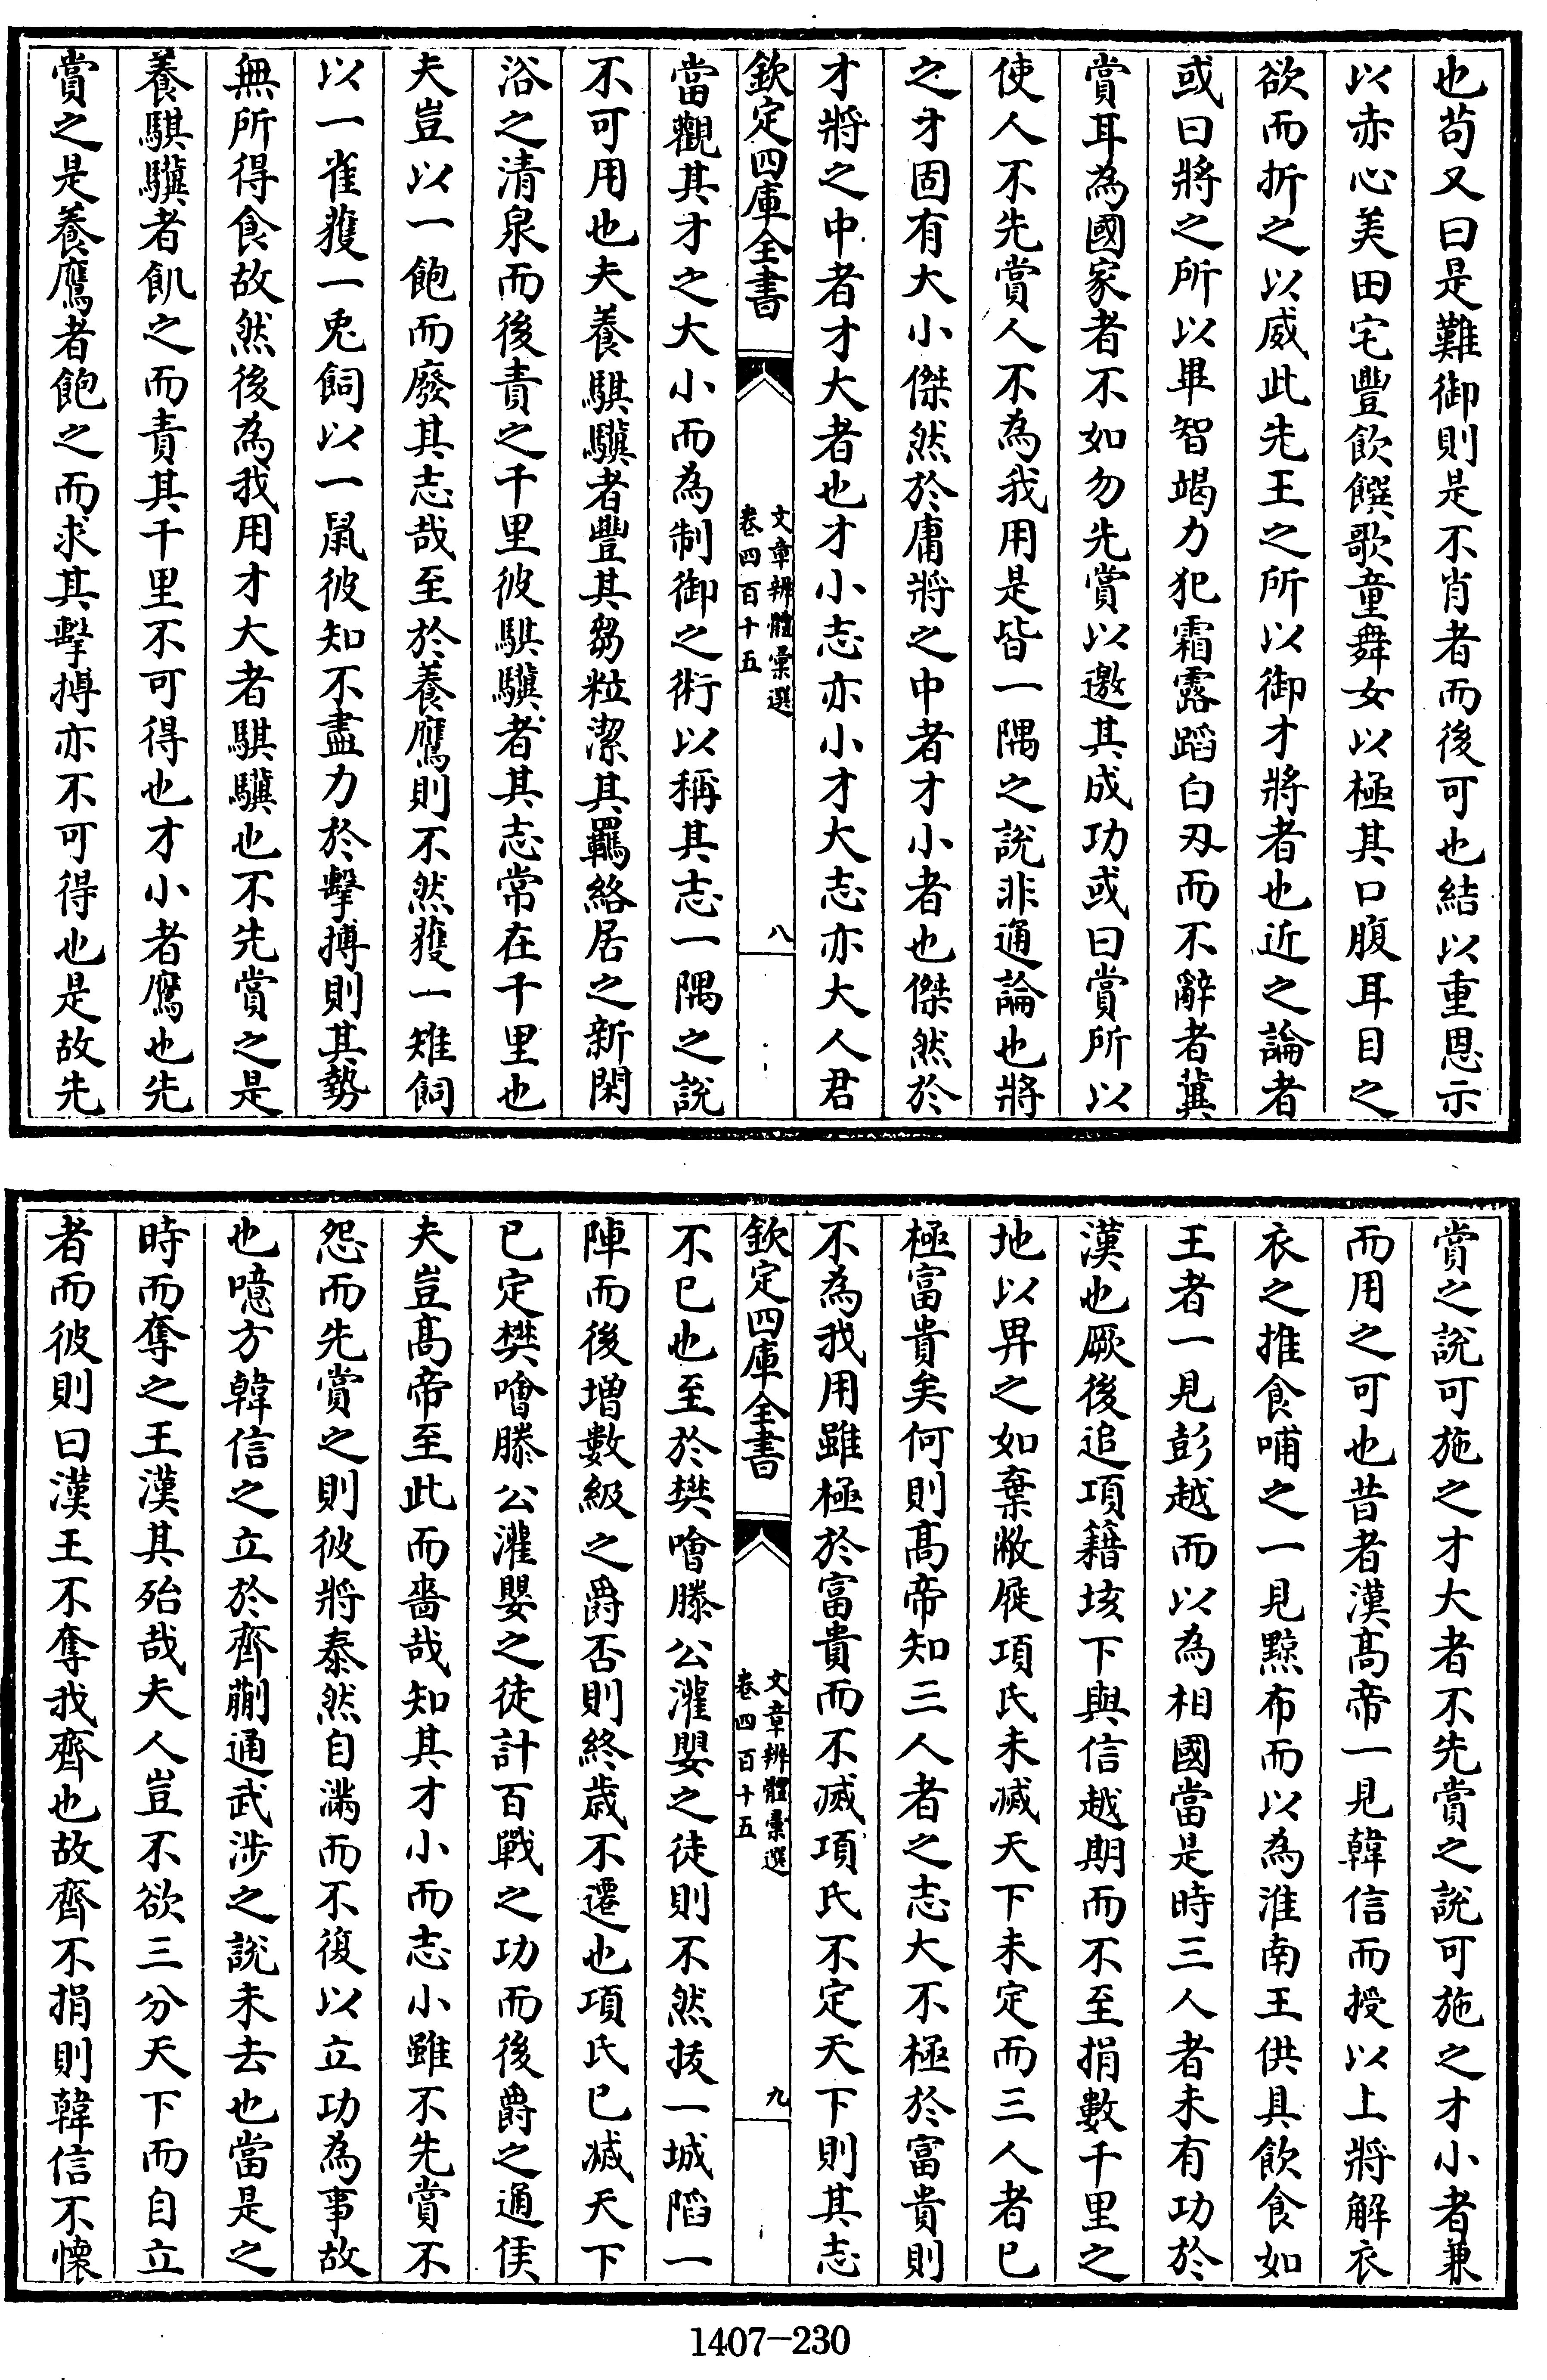 也苟又曰是難御則是不肖者而後可也結以重恩示
以赤心美田宅豐飲饌歌童舞女以極其口腹耳目之
欲而折之以威此先王之所以御才將者也近之論者
或曰將之所以畢智竭力犯霜露蹈白刃而不辭者冀
賞耳為國家者不如勿先賞以邀其成功或曰賞所以
使人不先賞人不為我用是皆一隅之說非通論也將
之才固有大小傑然於庸將之中者才小者也傑然於
才將之中者才大者也才小志亦小才大志亦大人君
欽定四庫全書
文章辨體彙選
卷四百十五
八
當觀其才之大小而為制御之術以稱其志一隅之說
不可用也夫養騏驥者豐其芻粒潔其羈絡居之新閑
浴之清泉而後責之千里彼騏驥者其志常在千里也
夫豈以一飽而廢其志哉至於養鷹則不然獲一雉飼
以一雀獲一兎飼以一鼠彼知不盡力於擊搏則其勢
無所得食故然後為我用才大者騏驥也不先賞之是
養騏驥者飢之而責其千里不可得也才小者鷹也先
賞之是養鷹者飽之而求其擊搏亦不可得也是故先
賞之說可施之才大者不先賞之說可施之才小者兼
而用之可也昔者漢髙帝一見韓信而授以上將解衣
衣之推食哺之一見黥布而以為淮南王供具飲食如
王者一見彭越而以為相國當是時三人者未有功於
漢也厥後追項籍垓下與信越期而不至捐數千里之
地以畀之如棄敝屣項氏未滅天下未定而三人者已
極富貴矣何則髙帝知三人者之志大不極於富貴則
不為我用雖極於富貴而不滅項氏不定天下則其志
欽定四庫全書
文章辨體彙選
卷四百十五
九
不已也至於樊噲滕公灌嬰之徒則不然拔一城陷一
陣而後增數級之爵否則終歲不遷也項氏已滅天下
已定樊噲滕公灌嬰之徒計百戰之功而後爵之通侯
夫豈髙帝至此而嗇哉知其才小而志小雖不先賞不
怨而先賞之則彼將泰然自滿而不復以立功為事故
也噫方韓信之立於齊蒯通武涉之說未去也當是之
時而奪之王漢其殆哉夫人豈不欲三分天下而自立
者而彼則曰漢王不奪我齊也故齊不捐則韓信不懷
1407-230